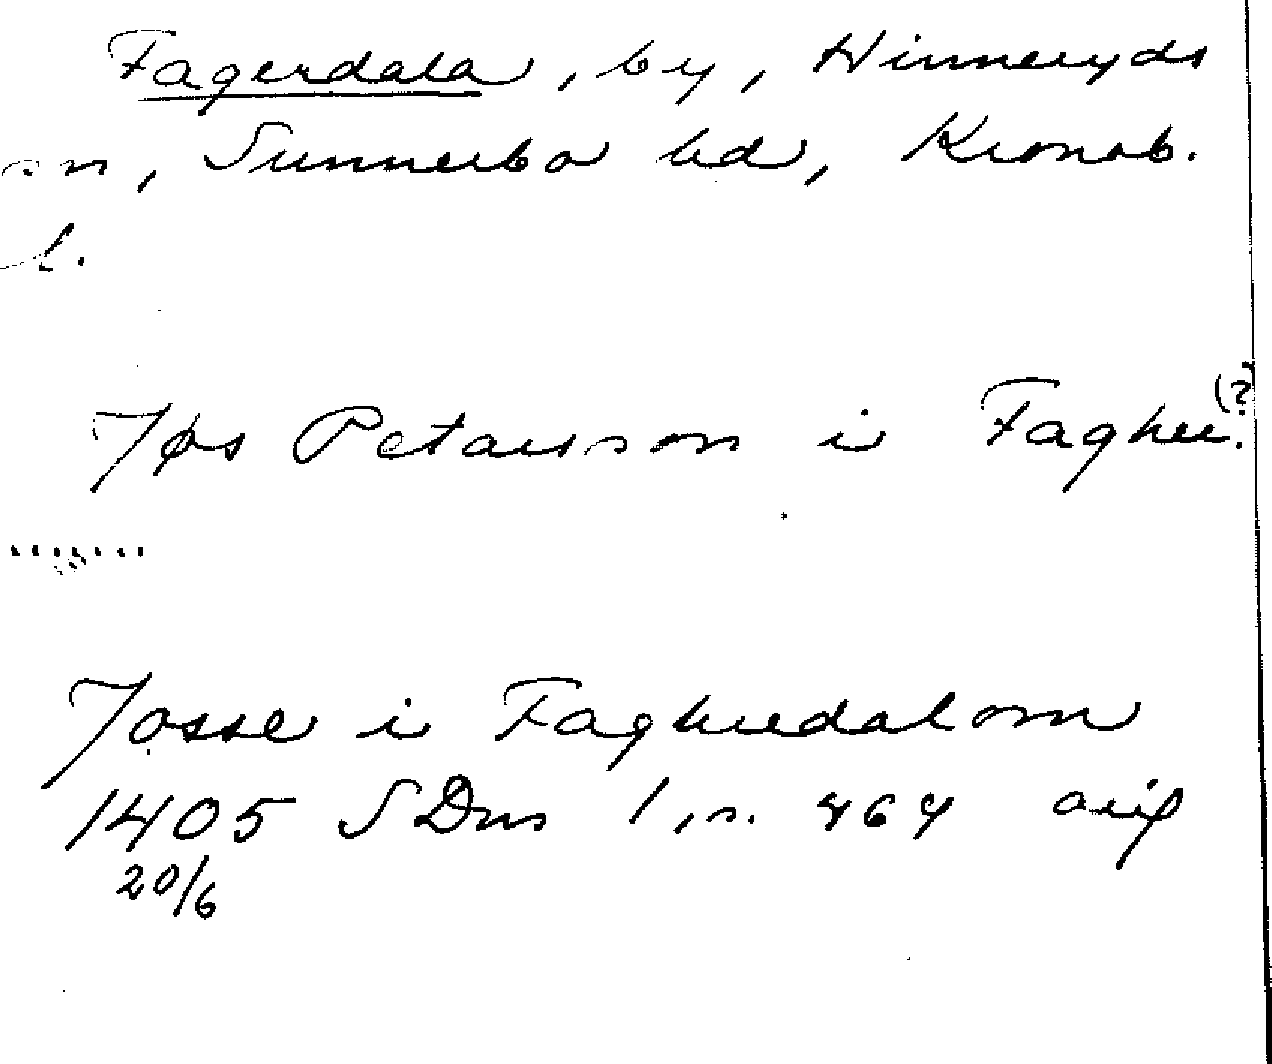 Fagerdala, by, Hinneryds
sn, Sunnerbo hd, Kronob.
l.
Jøs Petarsson i Fagher(?)
.......
Josse i Faghredalom
1405 SDns 1, s. 464 orig
20/6